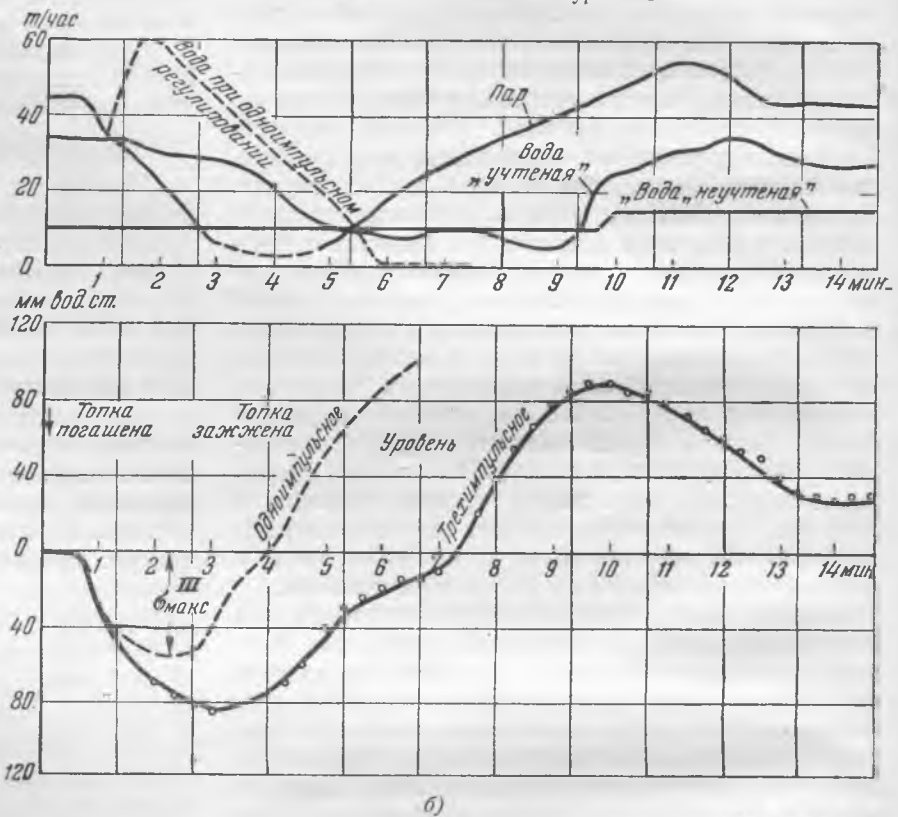 т/час
60
40
20
0
Вода при одноимпульсном
регулитовании
Пар
Вода
„учтеная"
„Вода„неучтеная"
1 2 3 4 5 6 7 8 9 10 11 12 13 14 мин.
мм вод.ст.
120
80
40
0
40
80
120
Топка
погашена
Топка
зажжена
Одноимпульсное
Уровень
Трехимпульсное
1 2 3 4 5 6 7 8 9 10 11 12 13 14 мин
III
макс
б)